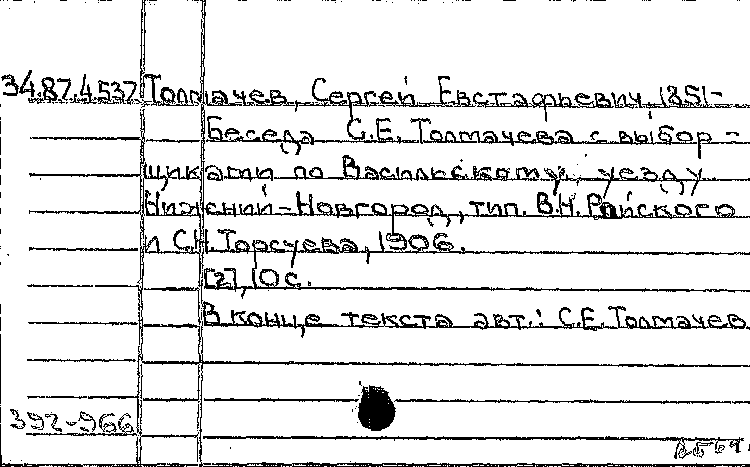 34.87.4.537 Толмачев, Сергей Евстафьевич, 1851-
Беседа С.Е. Толмачева с выбор-
щиками по Васильскому уезду
Нижний-Новгород, тип. В.Н. Райского
и С.Н. Торсуева, 1906.
[2], 10 с.
В конце текста авт.: С.Е. Толмачев
392-966